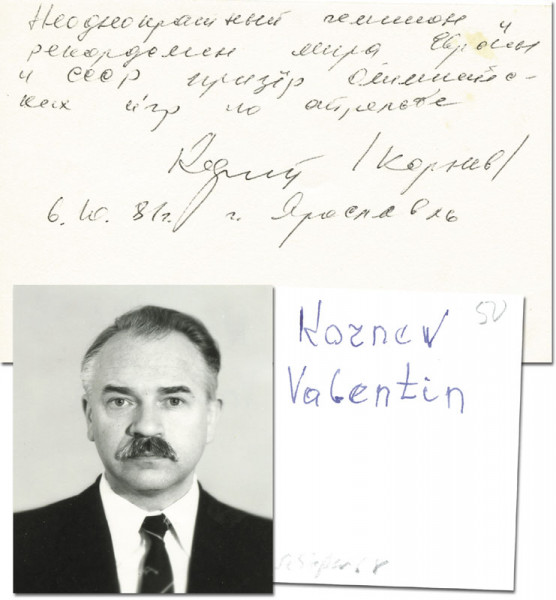 Неоднократный чемпион и
рекордсмен мира Европы
и СССР призёр Олимпийс-
ких игр по стрельбе
/Корнев/
г. Ярославль
SU
Kornev
Valentin